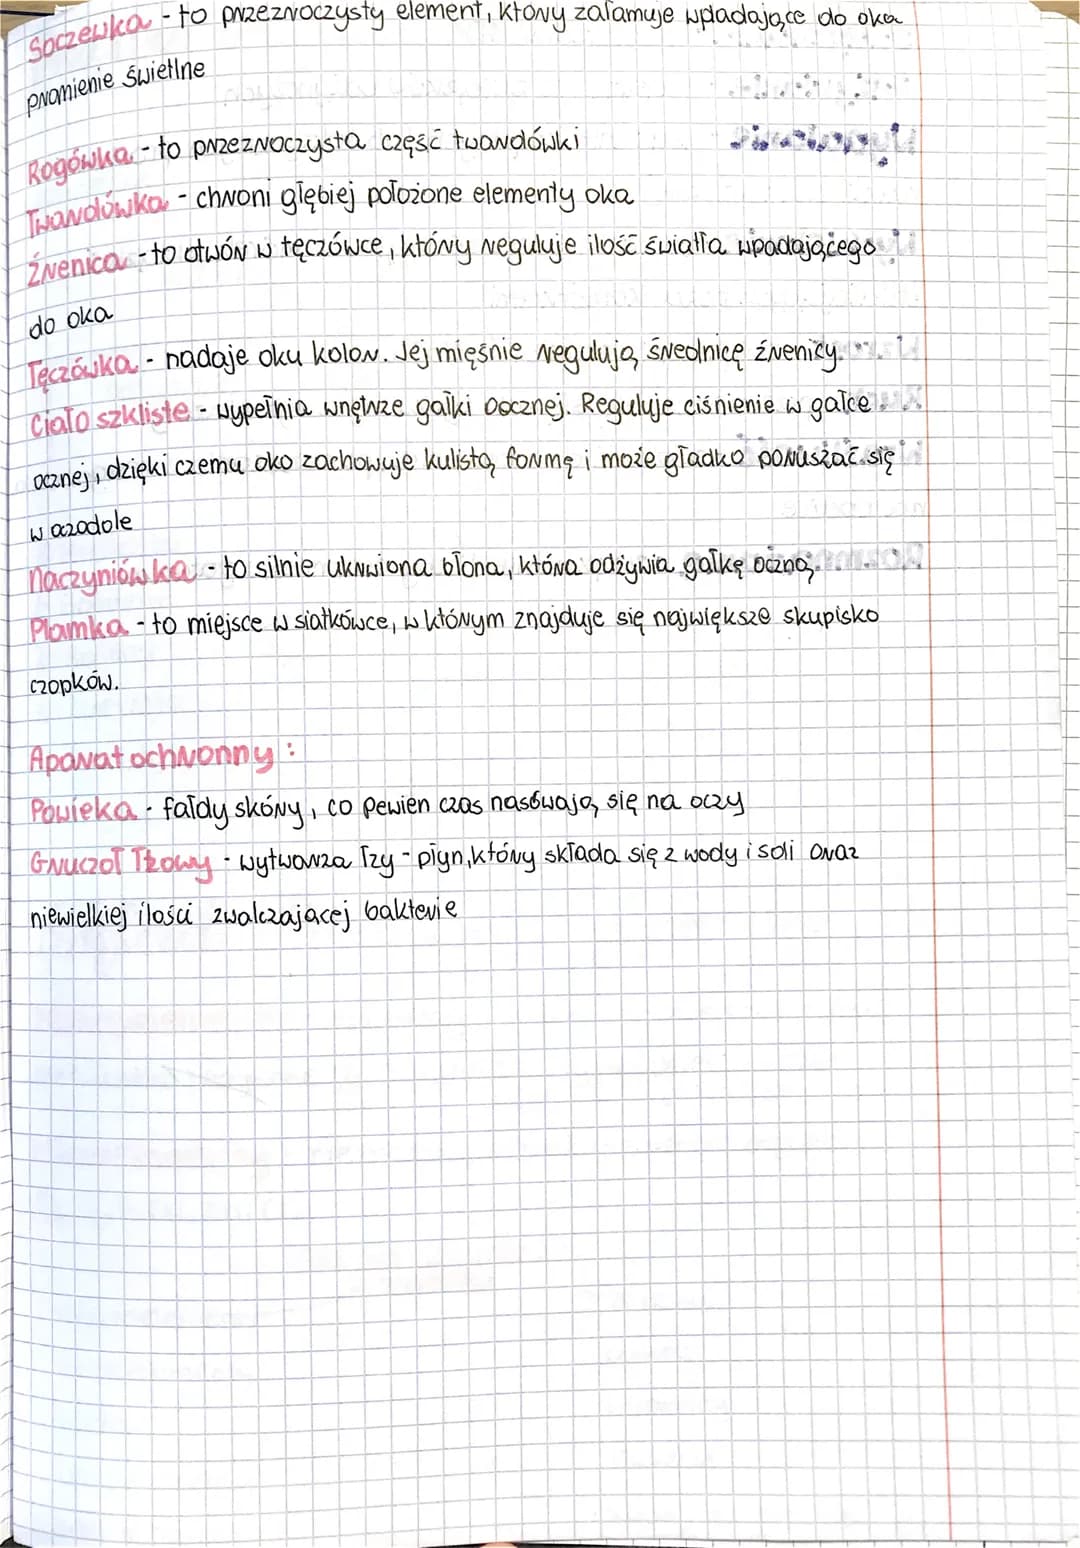 Soczewka - to przezroczysty element, który załamuje wpadające do oka
promienie świetlne
Rogówka - to przezroczysta część twardówki
Twardówka - chroni głębiej położone elementy oka
Źrenica - to otwór w tęczówce, który reguluje ilość światła wpadającego
do oka
Tęczówka - nadaje oku kolor. Jej mięśnie regulują średnicę źrenicy.
Ciało szkliste - wypełnia wnętrze gałki oocznej. Reguluje ciśnienie w gałce
ocznej, dzięki czemu oko zachowuje kulistą formę i może gładko poruszać się
w oczodole
Naczyniówka - to silnie ukrwiona błona, która odżywia gałkę oczną.
Plamka - to miejsce w siatkówce, w którym znajduje się największe skupisko
czopków.
Aparat ochronny :
Powieka - fałdy skóry, co pewien czas nasówają się na oczy
Gruczoł Łzowy - wytwarza łzy - płyn, który składa się z wody i soli oraz
niewielkiej ilości zwalczającej bakterie